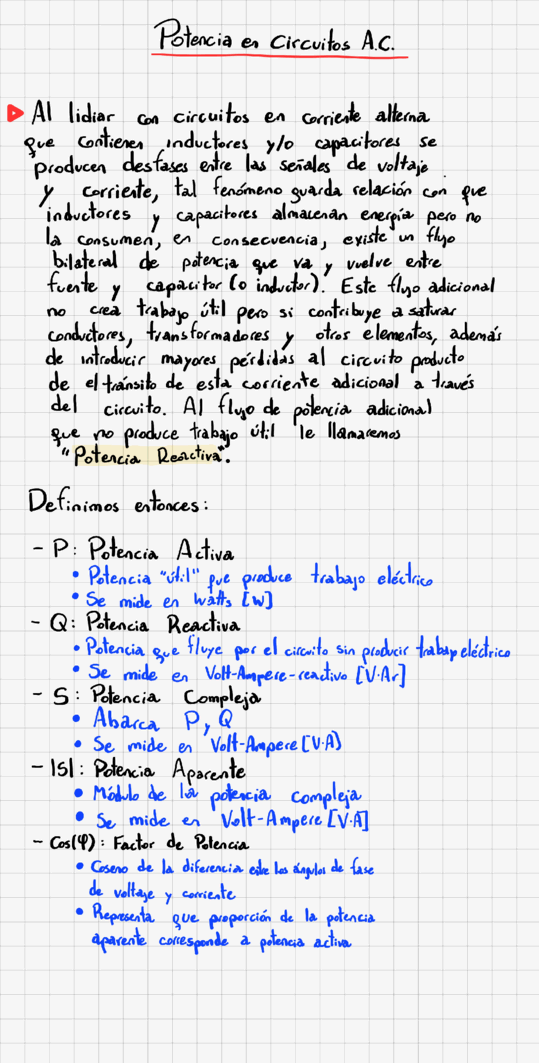 Potencia en Circuitos A.C.
Al lidiar con circuitos en corriente alterna
que contienen inductores y/o capacitores se
producen desfases entre las señales de voltaje
y corriente, tal fenómeno guarda relación con que
inductores y capacitores almacenan energía pero no
la consumen, en consecuencia, existe un flujo
bilateral de potencia que va y vuelve entre
fuente y capacitor (o inductor). Este flujo adicional
no crea trabajo útil pero si contribuye a saturar
conductores, transformadores y otros elementos, además
de introducir mayores pérdidas al circuito producto
de el tránsito de esta corriente adicional a través
del circuito. Al flujo de potencia adicional
que no produce trabajo útil le llamaremos
"Potencia Reactiva".
Definimos entonces:
- P: Potencia Activa
• Potencia "útil" que produce trabajo eléctrico
• Se mide en Watts [W]
- Q: Potencia Reactiva
• Potencia que fluye por el circuito sin producir trabajo eléctrico
• Se mide en Volt-Ampere-reactivo [V·Ar]
- S: Potencia Compleja
• Abarca P y Q
• Se mide en Volt-Ampere [V·A]
- |S|: Potencia Aparente
• Módulo de la potencia compleja
• Se mide en Volt-Ampere [V·A]
- Cos(φ): Factor de Potencia
• Coseno de la diferencia entre los ángulos de fase
de voltaje y corriente
• Representa que proporción de la potencia
aparente corresponde a potencia activa